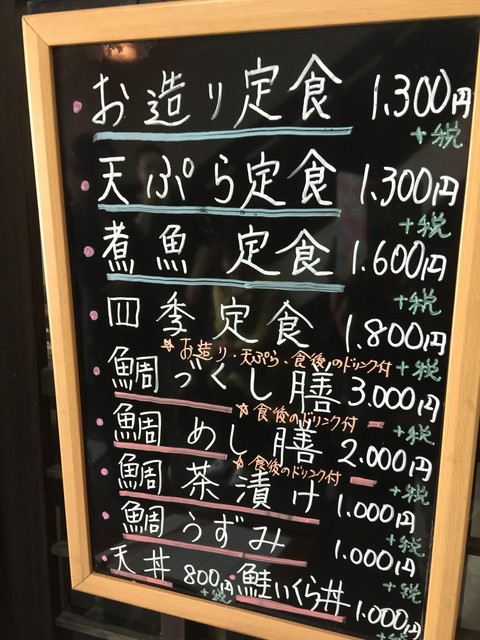 お造り定食 1.300円
+税
天ぷら定食 1.300円
+税
煮魚定食 1.600円
+税
四季定食 1.800円
☆お造り・天ぷら・食後のドリンク付 +税
鯛づくし膳 3.000円
☆食後のドリンク付 +税
鯛めし膳 2.000円
☆食後のドリンク付 +税
鯛茶漬け 1.000円
+税
鯛うずみ 1.000円
+税
天丼 800円 鮭いくら丼 1.000円
+税 +税